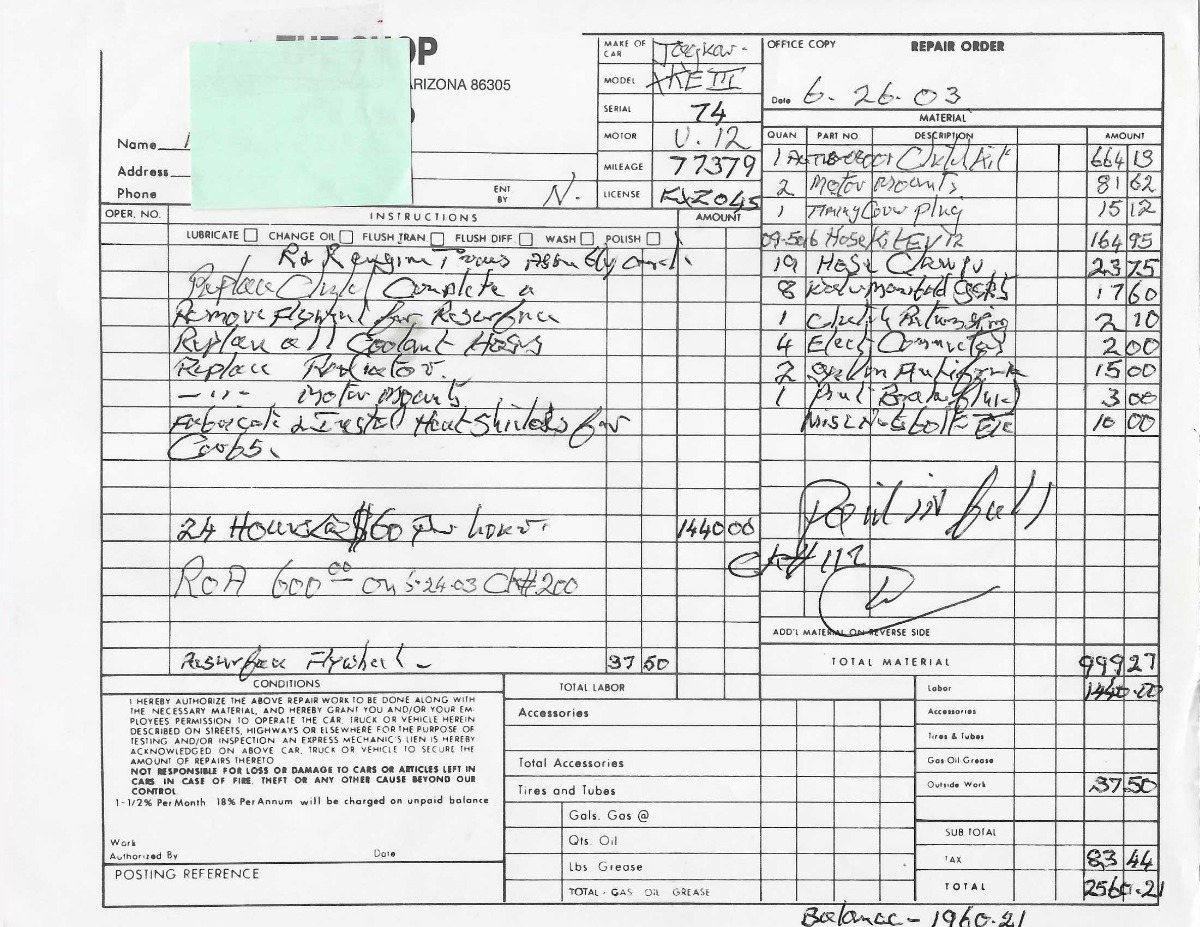 THE SHOP
ARIZONA 86305
Name
Address
Phone
ENT BY N.
MAKE OF CAR Jagkar-
MODEL XKE III
SERIAL 74
MOTOR V.12
MILEAGE 77379
LICENSE
OFFICE COPY REPAIR ORDER
Date 6-26-03
MATERIAL
QUAN PART NO. DESCRIPTION AMOUNT
1 Clutch Kit 664 13
2 Motor mounts 81 62
1 Timing Cover plug 15 12
Hose Kit EV12 164 95
19 Hose Clamps 23 75
8 manifold gskts 17 60
1 Clutch Return spring 2 10
4 Elect Connectors 2 00
2 15 00
1 3 00
Misc Nuts bolts Etc 10 00
Paid in full
CK# 112
ADD'L MATERIAL ON REVERSE SIDE
TOTAL MATERIAL 999 27
OPER. NO. INSTRUCTIONS AMOUNT
LUBRICATE CHANGE OIL FLUSH TRAN FLUSH DIFF. WASH POLISH
R&R engine Trans
Replace Clutch Complete
Remove Flywheel for Resurface
Replace all Coolant Hoses
Replace Radiator.
-"- Motor mounts
Fabricate & Install Heat Shields for
Carbs.
24 Hours @ $60 per hour. 1440 00
ROA 600 00 on 5-24-03 CK# 200
Resurface Flywheel - 37 50
CONDITIONS
I HEREBY AUTHORIZE THE ABOVE REPAIR WORK TO BE DONE ALONG WITH
THE NECESSARY MATERIAL, AND HEREBY GRANT YOU AND/OR YOUR EM-
PLOYEES PERMISSION TO OPERATE THE CAR, TRUCK OR VEHICLE HEREIN
DESCRIBED ON STREETS, HIGHWAYS OR ELSEWHERE FOR THE PURPOSE OF
TESTING AND/OR INSPECTION AN EXPRESS MECHANIC'S LIEN IS HEREBY
ACKNOWLEDGED ON ABOVE CAR, TRUCK OR VEHICLE TO SECURE THE
AMOUNT OF REPAIRS THERETO
NOT RESPONSIBLE FOR LOSS OR DAMAGE TO CARS OR ARTICLES LEFT IN
CARS IN CASE OF FIRE, THEFT OR ANY OTHER CAUSE BEYOND OUR
CONTROL.
1-1/2% Per Month 18% Per Annum will be charged on unpaid balance
Work
Authorized By Date
POSTING REFERENCE
TOTAL LABOR
Accessories
Total Accessories
Tires and Tubes
Gals. Gas @
Qts. Oil
Lbs Grease
TOTAL - GAS OIL GREASE
Labor 1440.00
Accessories
Tires & Tubes
Gas Oil Grease
Outside Work 37.50
SUB TOTAL
TAX 83 44
TOTAL 2560.21
Balance - 1960.21